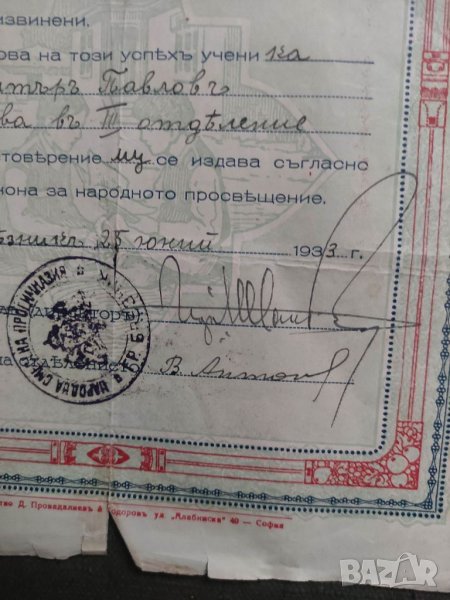 извинени.
ова на този успѣхъ учени ка
итъръ Павловъ
ва въ III отдѣление
товѣрение му се издава съгласно
она за народното просвѣщение.
25 юний 1933 г.
НАРОДНА СМѢС НА ПРОГИМНАЗИЯ
В. Антонов
тво Д. Провадалиев & Тодоровъ ул. „Клабниска" 40 — София
BAZAR